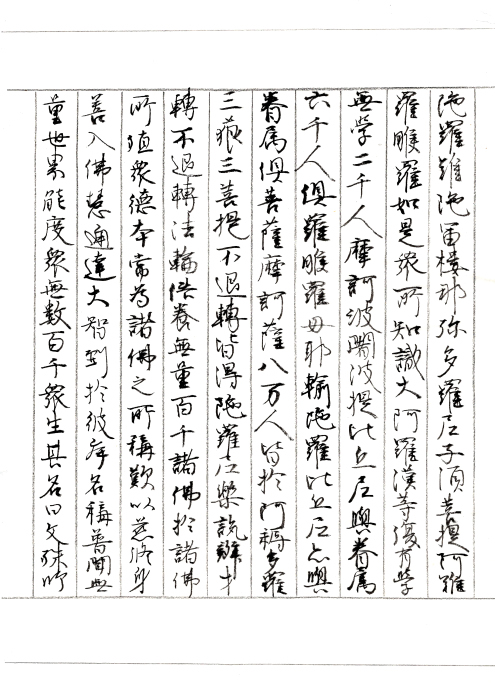 陀羅難陀富樓那弥多羅尼子須菩提阿難
羅睺羅如是衆所知識大阿羅漢等復有學
無學二千人摩訶波闍波提比丘尼與眷属
六千人俱羅睺羅母耶輸陀羅比丘尼亦與
眷属俱菩薩摩訶薩八万人皆於阿耨多羅
三藐三菩提不退轉皆得陀羅尼樂説辯才
轉不退轉法輪供養無量百千諸佛於諸佛
所殖衆德本常為諸佛之所稱歎以慈修身
善入佛慧通達大智到於彼岸名稱普聞無
量世界能度無数百千衆生其名曰文殊師